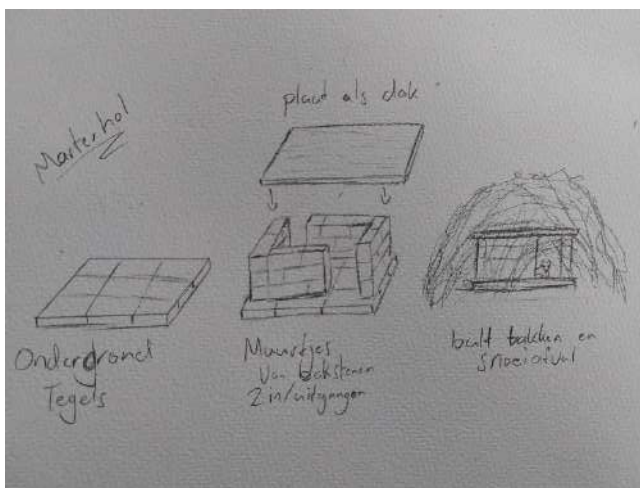 Marterhol
plaat als dak
Ondergrond
Tegels
Muurtjes
Van bakstenen
2 in/uitgangen
bult takken en
snoeiafval